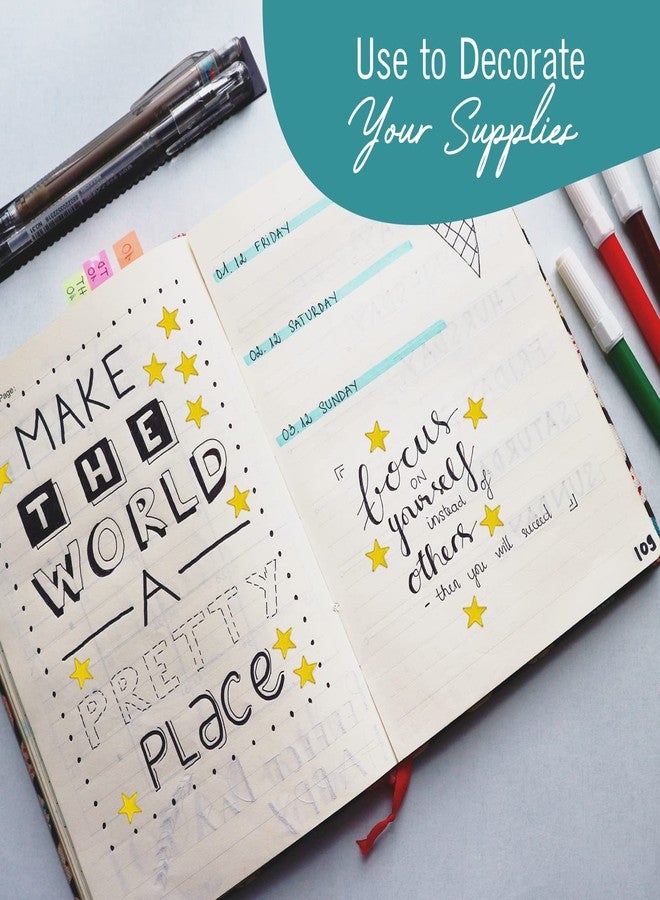 Use to Decorate
Your Supplies
Page:
MAKE
THE
WORLD
A
PRETTY
PLACE
01.12 FRIDAY
02.12 SATURDAY
03.12 SUNDAY
focus
on
yourself
instead of
others
- then you will succeed
109